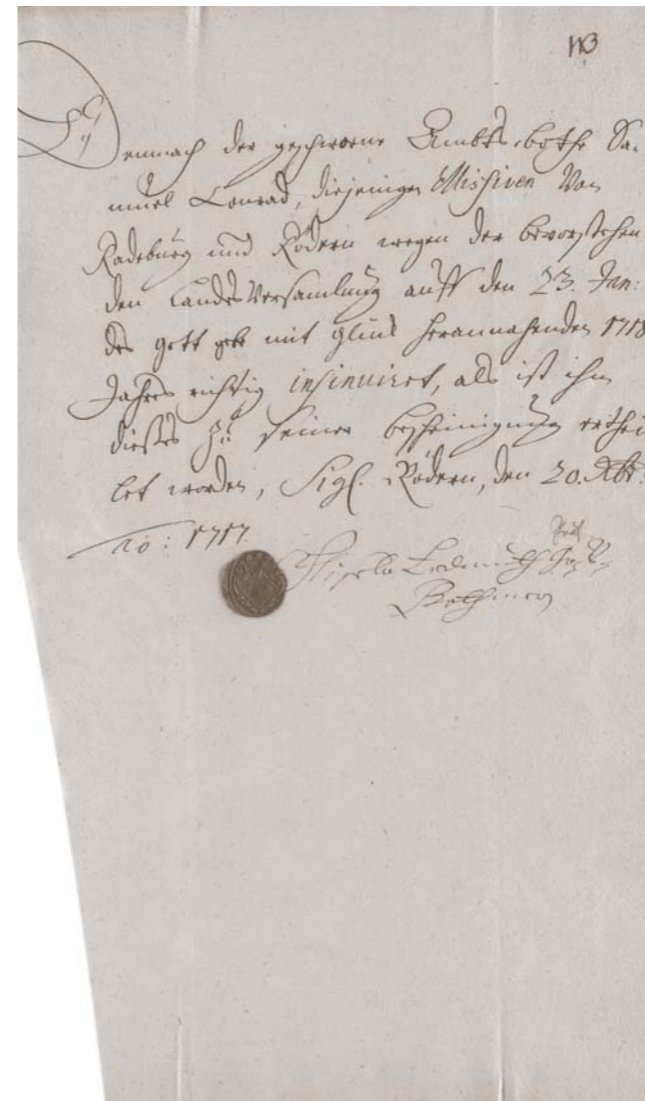 113
Demnach der geschworne Ambts-bothe Sa-
muel Conrad, diejenigen Missiven von
Radeburg und Rödern wegen der bevorstehen-
den LandesVersamlung auff den 23. Jan:
des gott gebe mit glück herannahenden 1718
Jahres richtig insinuiret, als ist ihm
dieses zu seiner bescheinigung erthei-
let worden, Sigl. Rödern, den 20. Xbr:
ao: 1717.
Bothmer